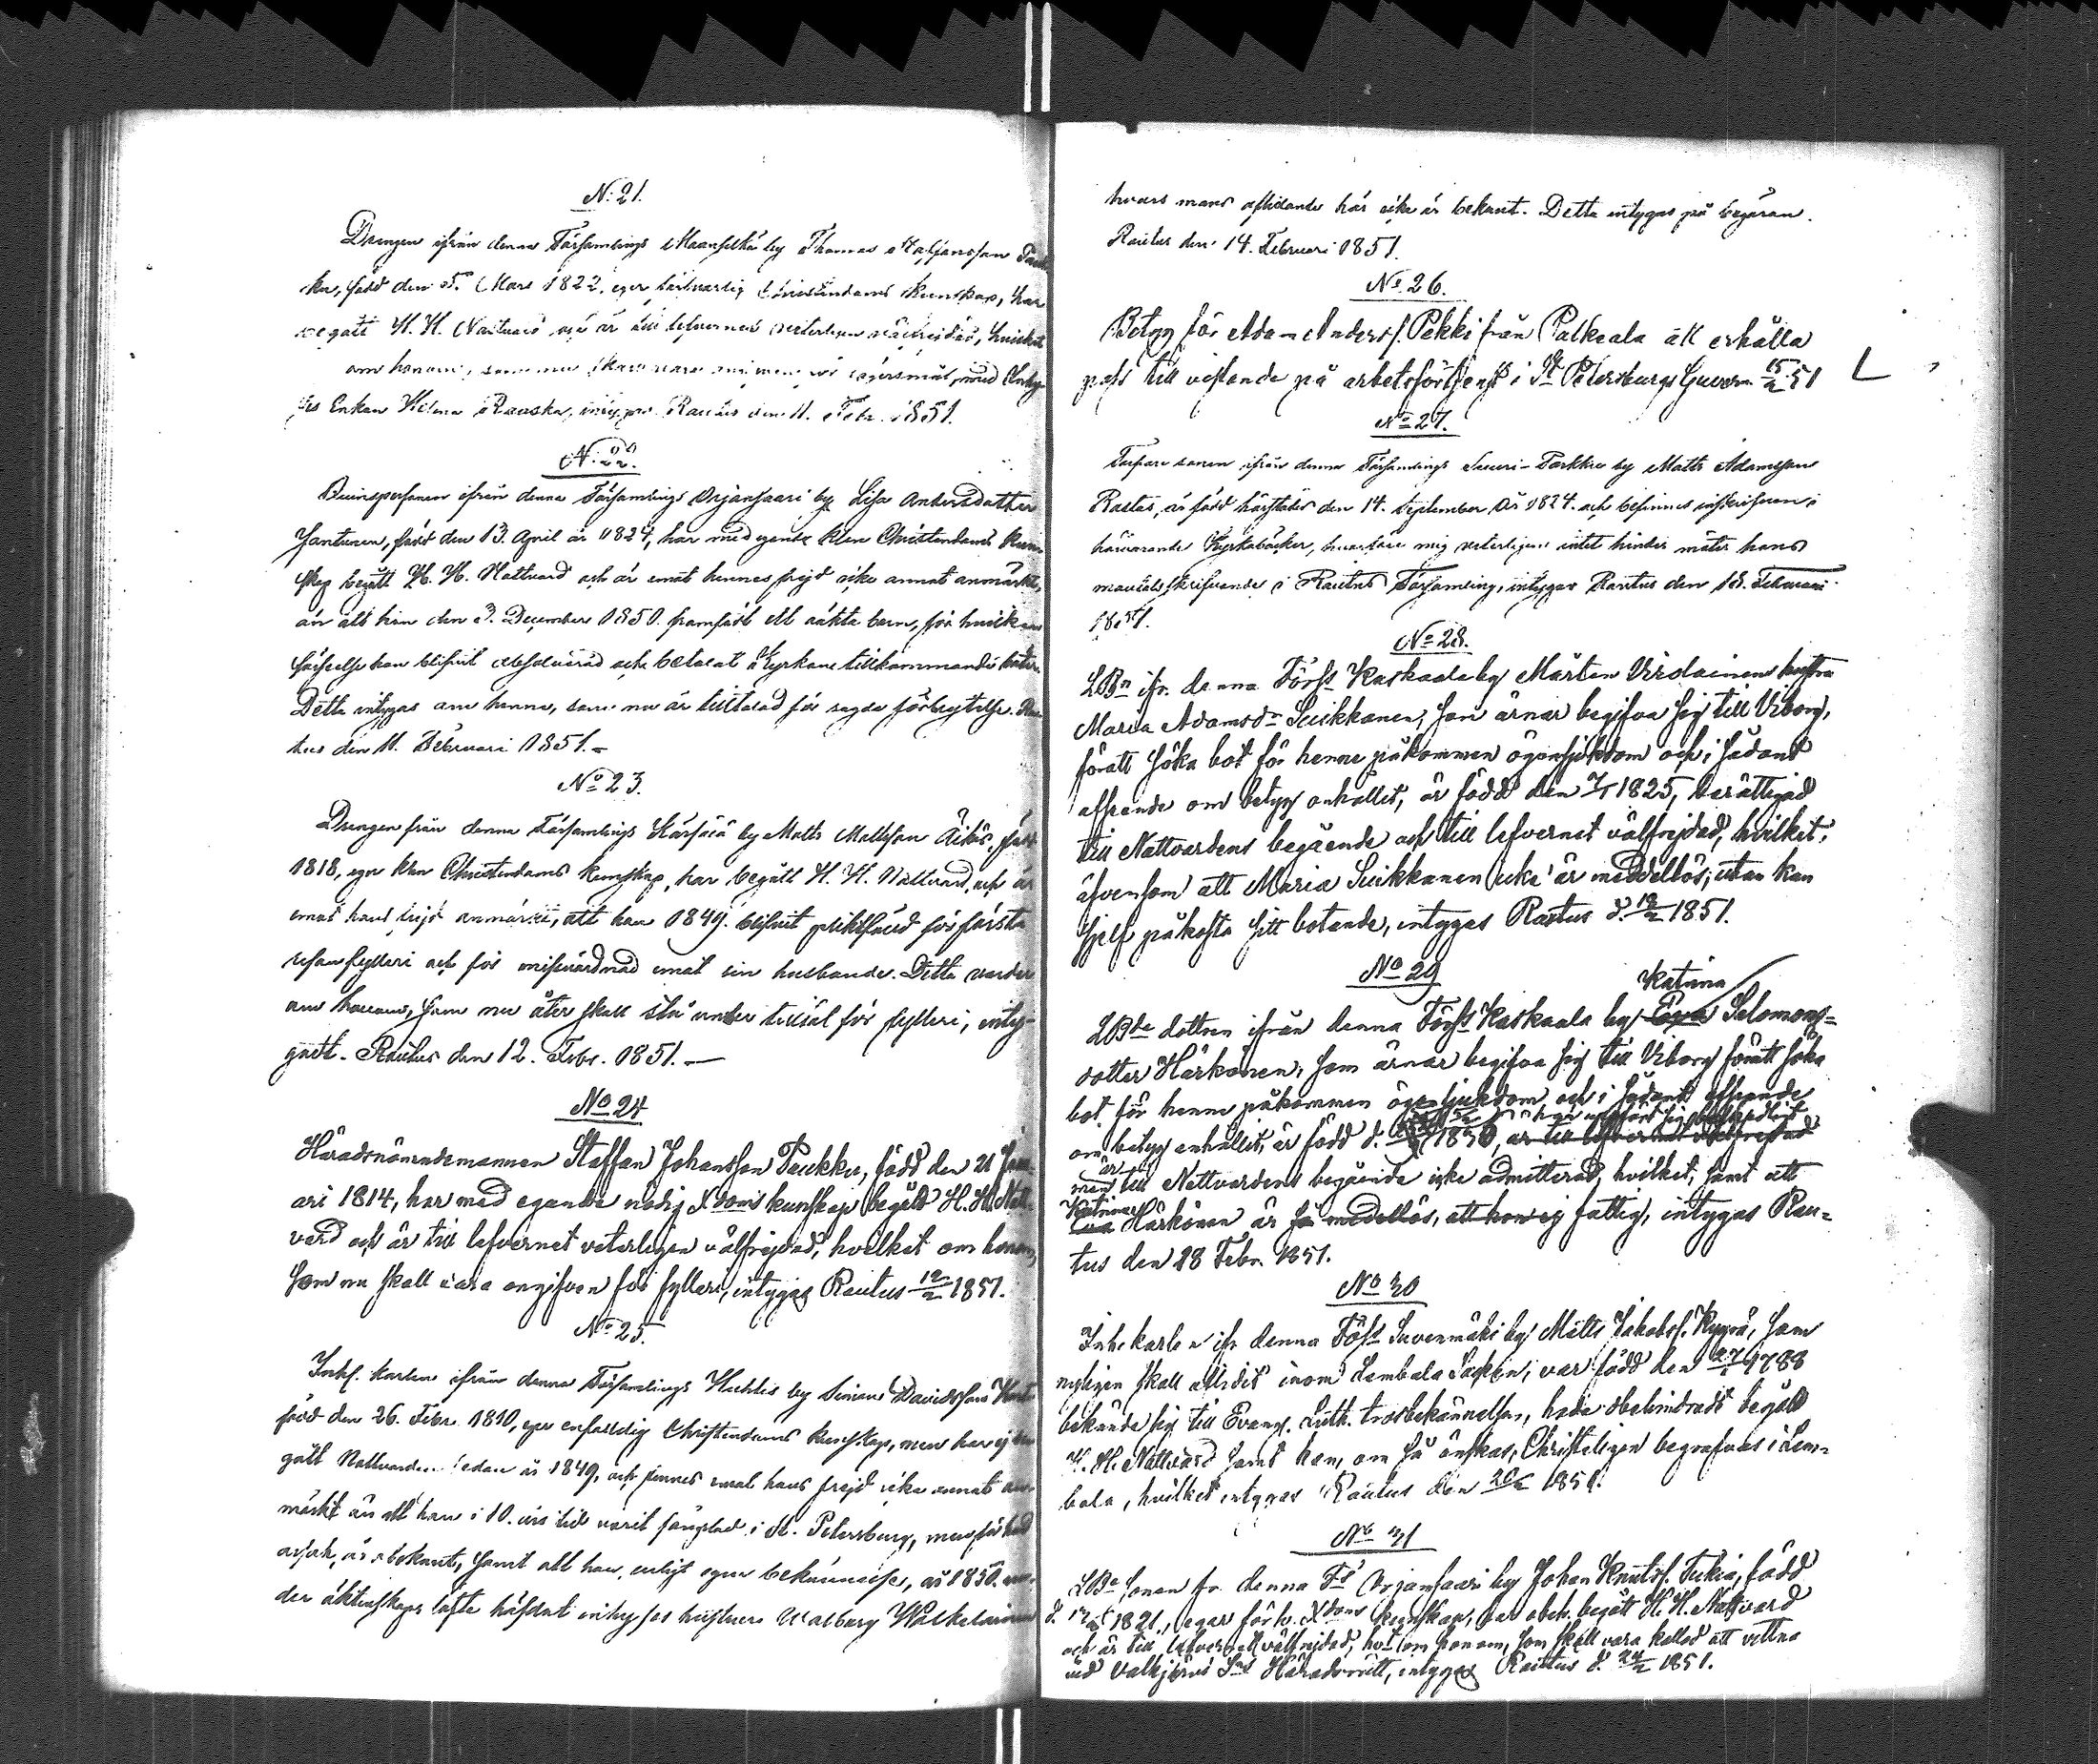 N: 21.
Drengen ifrån denna Församlings Maanselkä by Thomas Staffansson
född den 5. Mars 1822, eger försvarlig Christendoms kunskap, har
begått H. H. Nattvard och är till lefvernet veterligen välfrejdad, hvilket
om honom, som nu skall vara
Enkan Helena intygas. Rautus den 11. Febr. 1851.
N: 22.
ifrån denna Församlings Orjansaari by Lisa Andersdotter
Hantunen, född den 13. April år 1824, har med egande klen Christendoms kun-
skap begått H. H. Nattvard och är emot hennes frejd icke annat anmärkt,
än att hon den 3. December 1850. framfödt ett oäkta barn, för hvilken
förseelse hon blifvit absolverad och betalat Kyrkans tillkommande böter.
Detta intygas om henne, som nu är tilltalad för sagde förbrytelse. Rau-
tus den 11. Februari 1851. –
No 23.
Drengen från denna Församlings by Matts Mattsson Äikäs, född
1818, eger klen Christendoms kunskap, har begått H. H. Nattvard, och är
emot hans frejd anmärkt, att han 1849. blifvit pliktfälld för första
resan fylleri och för missvårdnad emot sin husbonde. Detta varder
om honom, som nu åter skall stå under tilltal för fylleri, intyg-
gadt. Rautus den 12. Febr. 1851. —
No 24
Häradsnämndemannen Staffan Johansson Paukku, född den 21 Janu-
ari 1814, har med egande nödig Xdoms kunskap begått H. H. Natt-
vard och är till lefvernet veterligen välfrejdad, hvilket om honom,
som nu skall vara angifven för fylleri, intygas Rautus 12/2 1851.
No 25.
Inh. karlen ifrån denna Församlings by Simon Davidsson
född den 26. Febr. 1810, eger enfaldig Christendoms kunskap, men har ej be-
gått Nattvarden sedan år 1849, och finnes emot hans frejd icke annat an-
märkt än att han i 10. års tid varit fängslad i St. Petersburg, men för hvad
orsak, är obekant, samt att han, enligt egen bekännelse, år 1850. un-
der äktenskaps löfte häfdat inhyses hustrun Walborg
hvars mans aflidande här icke är bekant. Detta intygas på begäran.
Rautus den 14. Februari 1851.
No. 26.
Betyg för Adam Anderss. Pekki från Palkeala att erhålla
pass till vistande på arbetsförtjenst i St Petersburgs Guvern. 15/2 51
No 27.
sonen ifrån denna Församlings by Matts Adamsson
Rastas, är född härstädes den 14. September år 1824. och befinnes inskrifven i
härvarande Kyrkoböcker, hvarföre mig veterligen intet hinder möter hans
mantalsskrifvande i Rautus Församling, intygas Rautus den 18. Februari
1851.
No 28.
LBn ifr. denna Förs. Kaskaala by Mårten Virolainens hustru
Maria Adamsdr Suikkanen, som ärnar begifva sig till Viborg,
för att söka bot för henne påkommen ögonsjukdom och i sådant
afseende om betyg anhållit, är född den 7/1 1825, berättigad
till Nattvardens begående och till lefvernet välfrejdad, hvilket,
äfvensom att Maria Suikkanen icke är meddellös, utan kan
sjelf påkosta sitt botande, intygas Rautus d. 19/2 1851.
No 29
Katrina
LBde dottren ifrån denna Förs. Kaskaala by Eva Salomons=
dotter Härkönen, som ärnar begifva sig till Viborg för att söka
bot för henne påkommen ögonsjukdom och i sådant afseende
om betyg anhållit, är född d. 1830, är till lefvernet välfrejdad
är
men till Nattvardens begående icke admitterad, hvilket, samt att
Katrina
Eva Härkönen är så medellös, att hon ej fattig, intygas Rau=
tus den 28 Febr. 1851.
No 30
Inh. karlen ifr. denna Förs. Suvenmäki by Matts Jakobss. Kyyrä, som
nyligen skall aflidit inom Lembala Socken, var född den 27/1 1788
bekände sig till Evang. Luth. trosbekännelsen, hade obehindradt begått
H. H. Nattvard samt kan, om så önskas, Christeligen begrafvas i Lem=
bala, hvilket intygas Rautus den 20/2 1851.
No 31
LBe sonen fr. denna Fs Orjansaari by Johan Knutss. Tukia, född
d. 1821, egar förv. Xdoms kunskap, har obeh. begått H. H. Nattvard
och är till lefvernet välfrejdad, hvt om honom, som skall vara kallad att vittna
vid Valkjärvi Sns Häradsrätt, intygas Rautus d. 24/2 1851.